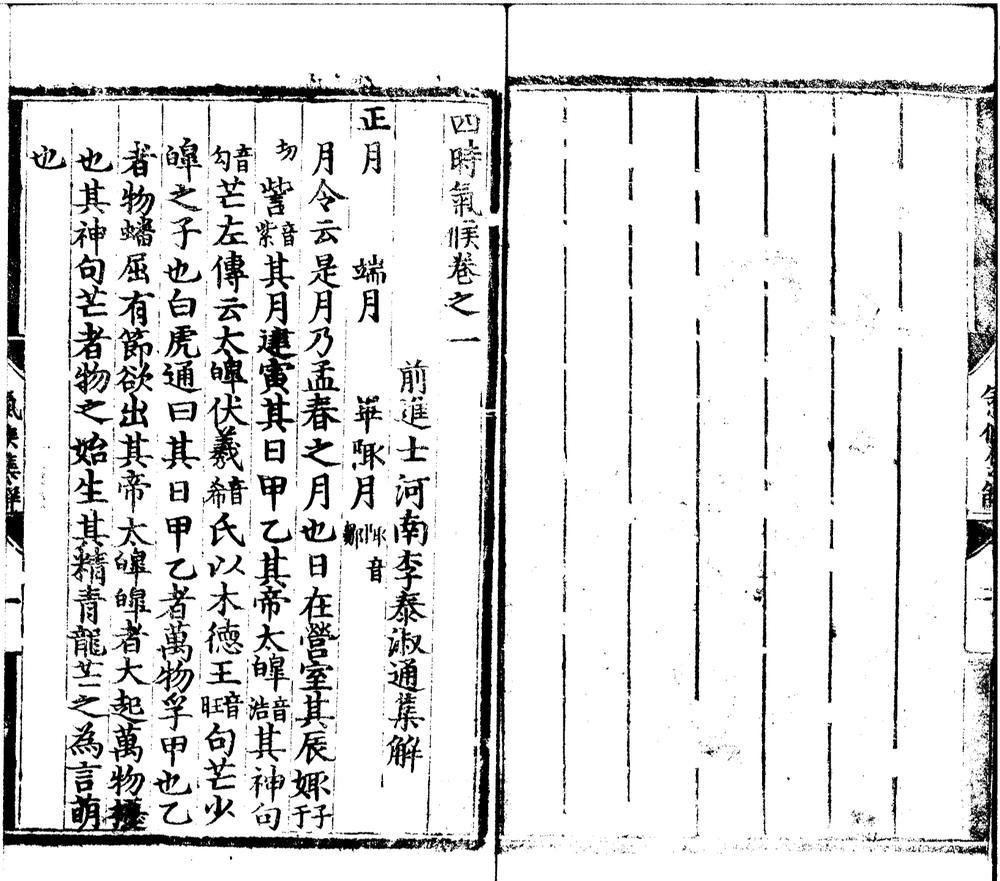 四時氣候卷之一
前進士河南李泰淑通集解
正月 端月 畢陬月 陬音鄒
月令云是月乃孟春之月也日在營室其辰娵子于
切訾音紫其月建寅其日甲乙其帝太皥音浩其神句
音勾芒左傳云太皥伏羲音希氏以木德王音旺句芒少
皥之子也白虎通曰其日甲乙者萬物孚甲也乙
者物蟠屈有節欲出其帝太皥皥者大起萬物擾
也其神句芒者物之始生其精青龍芒之為言萌
也
氣候集解
一